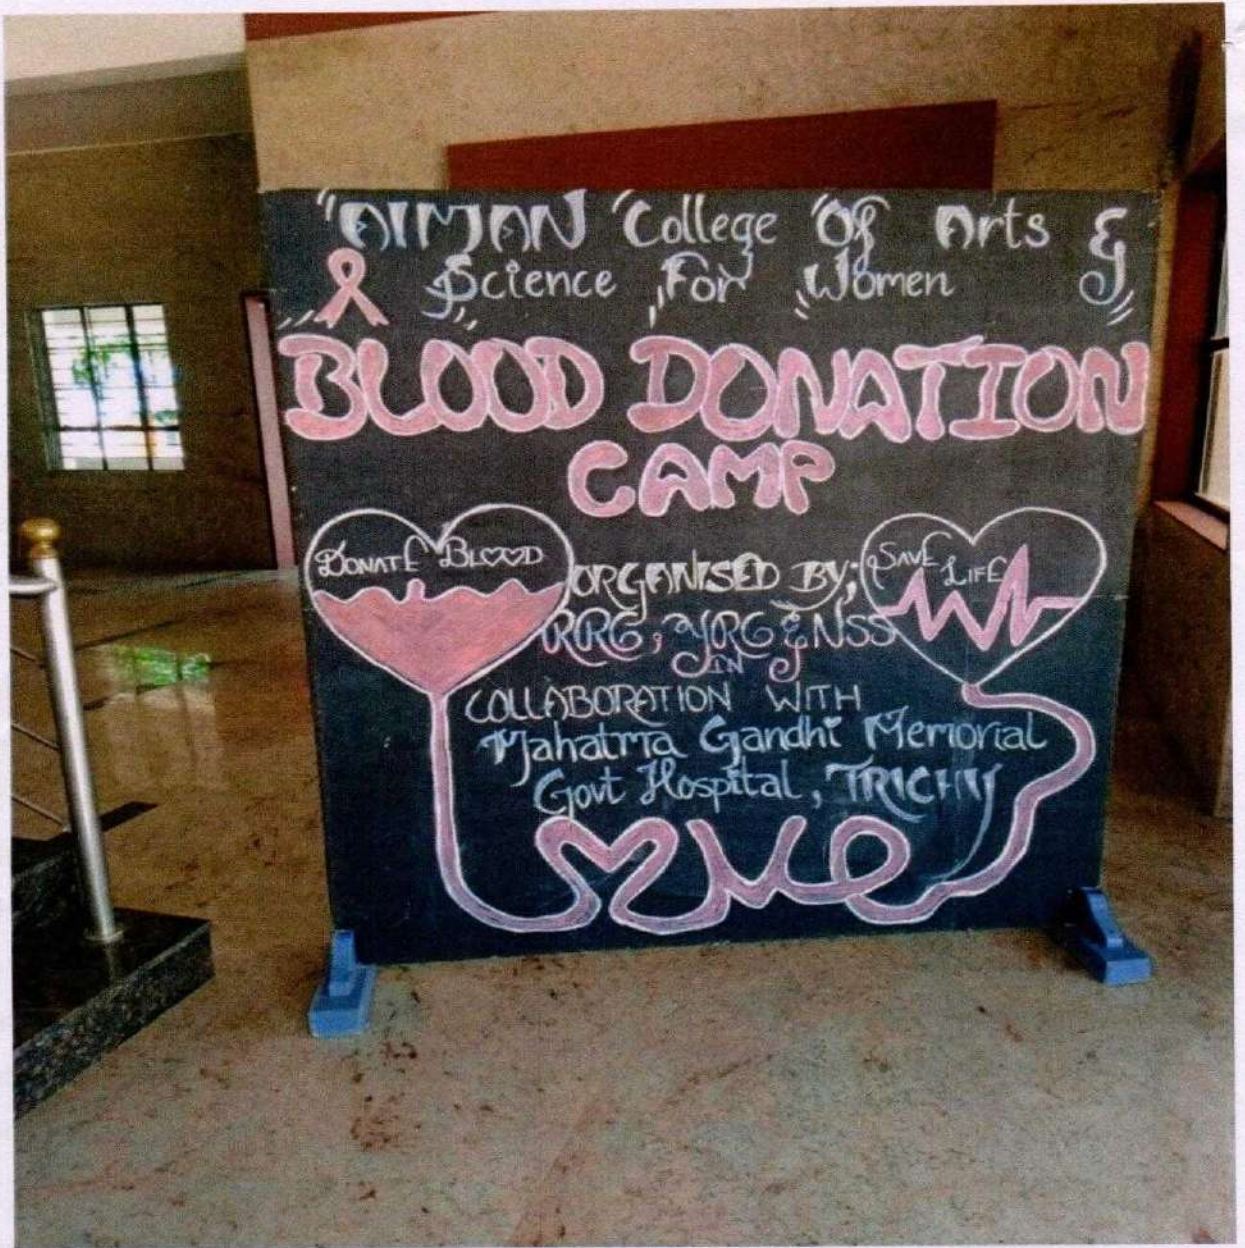 "AIMAN College Of Arts &
Science For Women"
BLOOD DONATION
CAMP
DONATE BLOOD
SAVE LIFE
ORGANISED BY;
RRC, YRC & NSS
IN
COLLABORATION WITH
Mahatma Gandhi Memorial
Govt Hospital, TRICHY